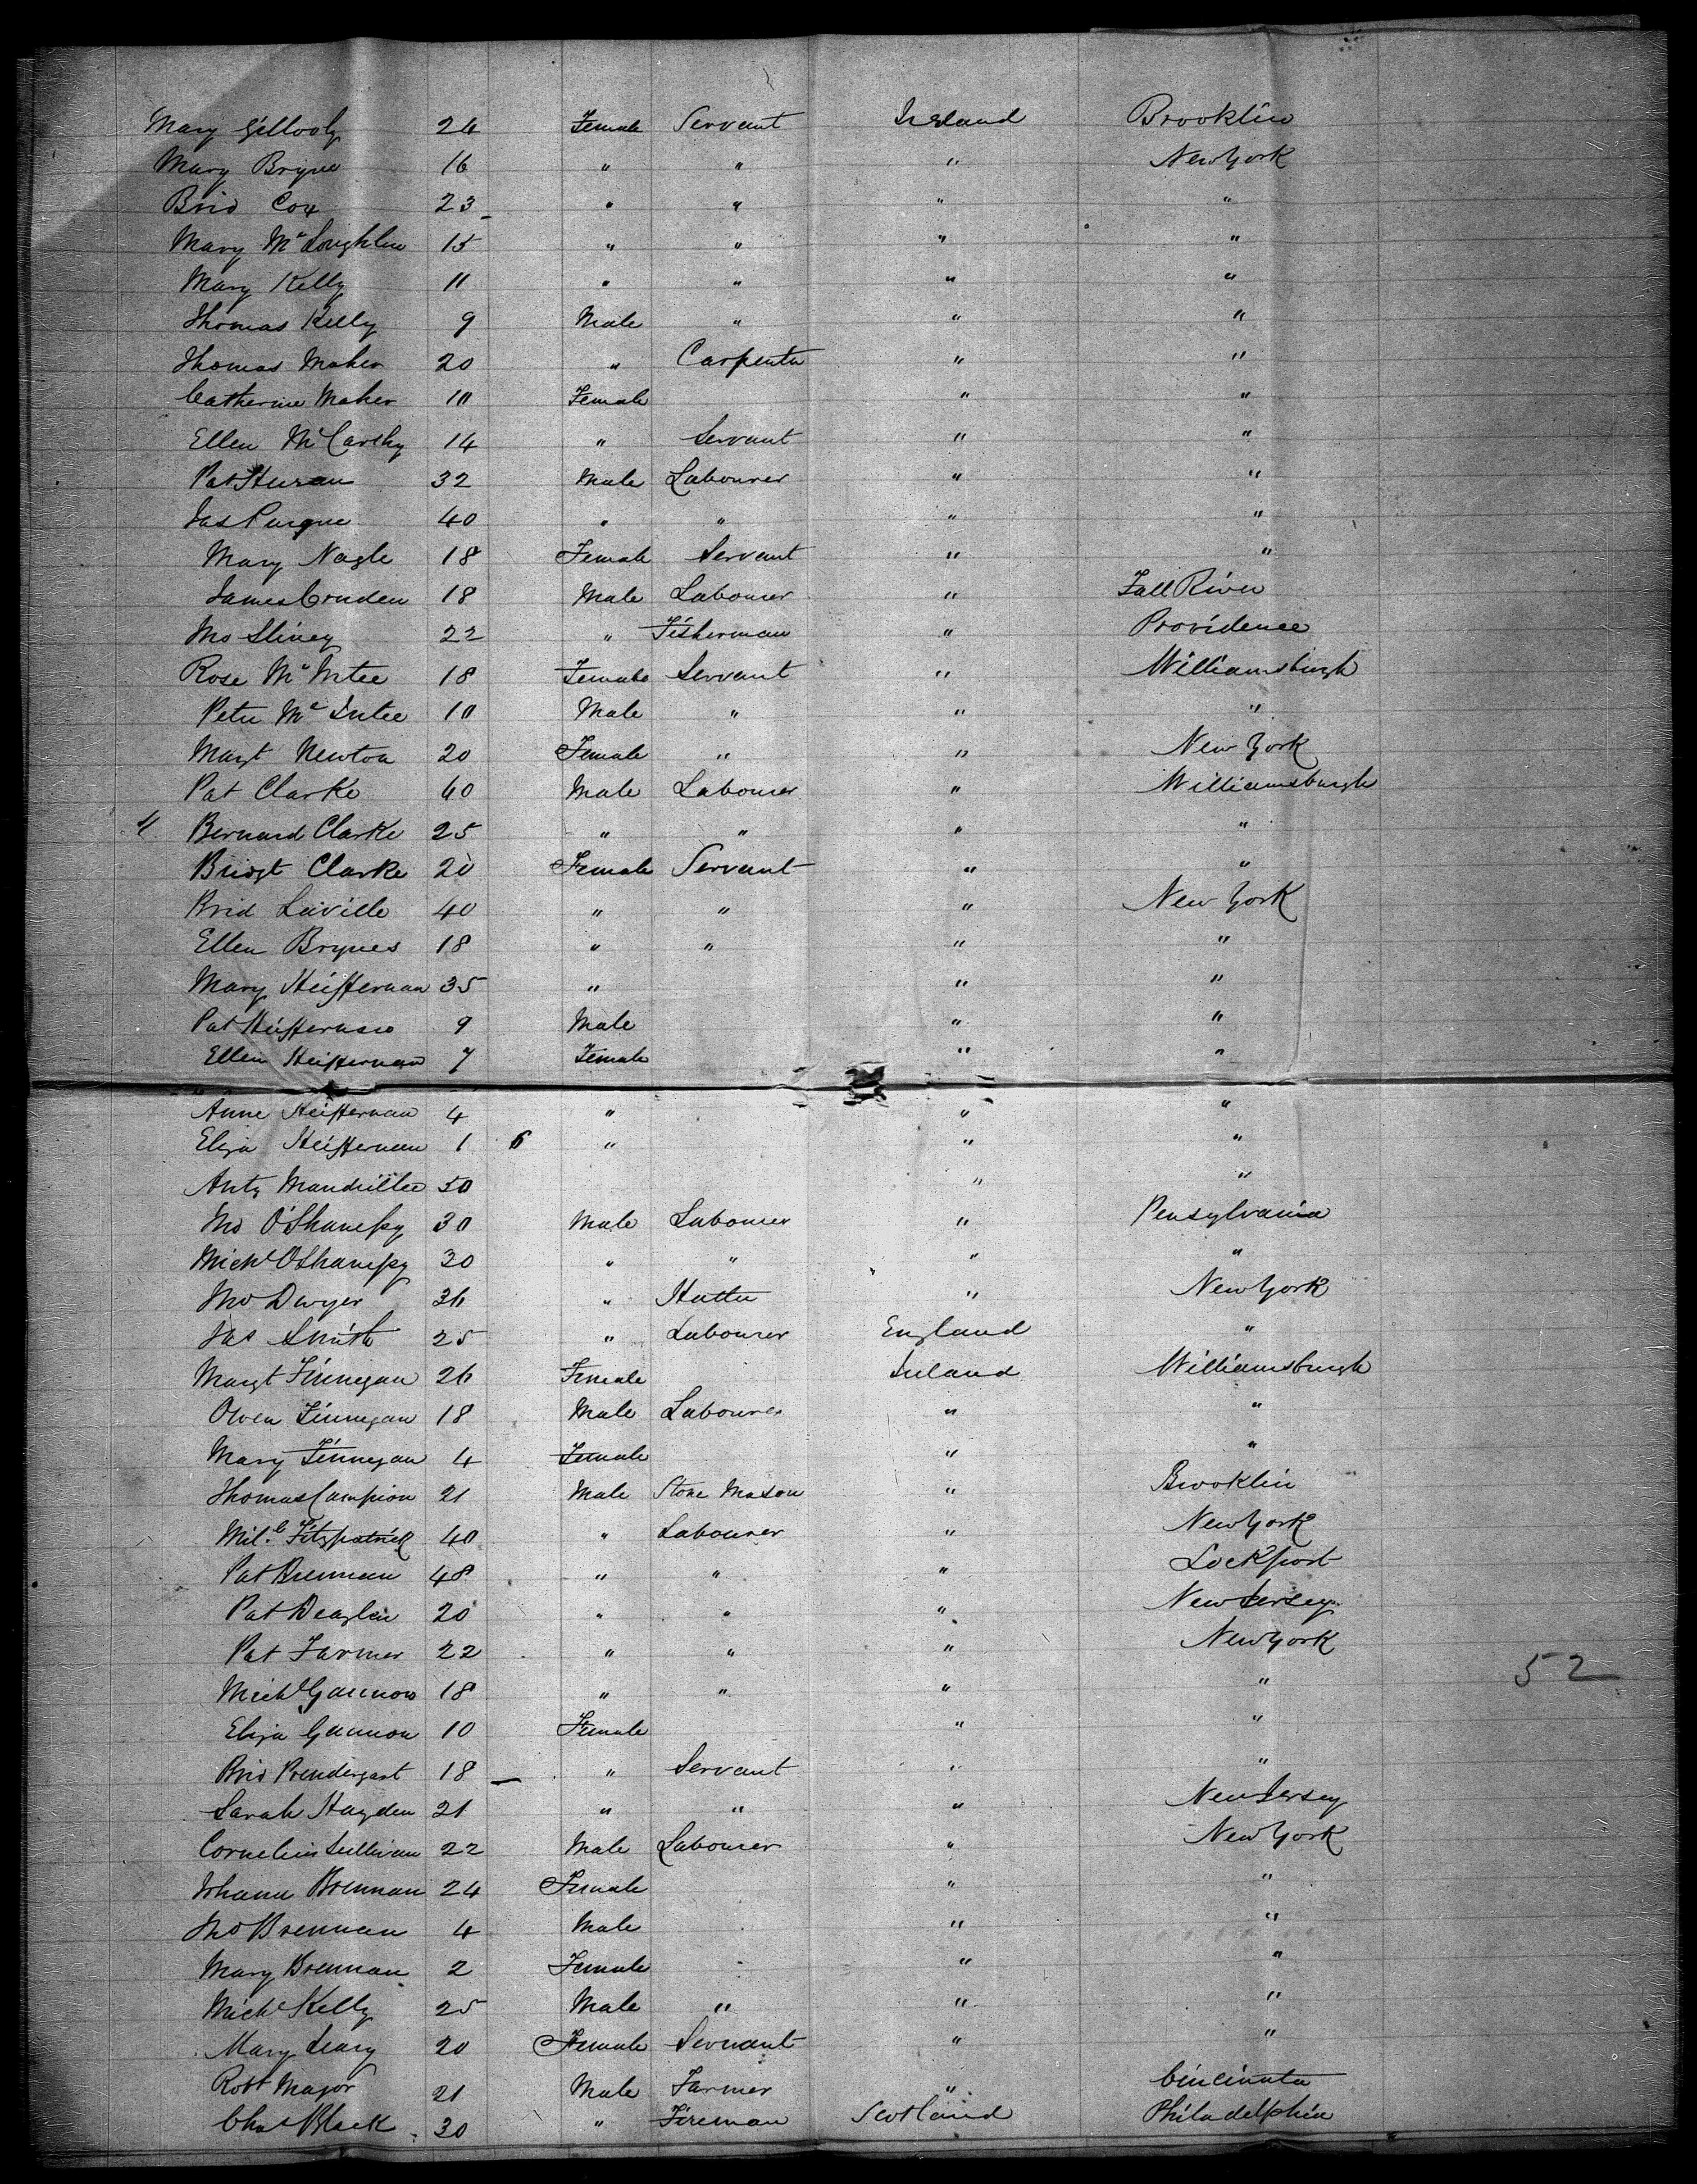 Mary Gillooly 26 Female Servant Ireland Brooklin
Mary Bryne 16 " " " New York
Brid Cox 23 " " " "
Mary McLoughlin 15 " " " "
Mary Kelly 11 " " " "
Thomas Kelly 9 Male " " "
Thomas Maher 20 " Carpenter " "
Catherine Maher 10 Female " "
Ellen McCarthy 14 " Servant " "
Pat 32 Male Labourer " "
Jas 40 " " " "
Mary Nagle 18 Female Servant " "
James Cruden 18 Male Labourer " Fall River
Jno Sliney 22 " Fisherman " Providence
Rose McIntee 18 Female Servant " Williamsburgh
Peter McIntee 10 Male " " "
Margt Newton 20 Female " " New York
Pat Clarke 40 Male Labourer " Williamsburgh
4 Bernard Clarke 25 " " " "
Bridgt Clarke 20 Female Servant " "
Brid Laville 40 " " " New York
Ellen Brynes 18 " " " "
Mary Heiffernan 35 " " "
Pat Heiffernan 9 Male " "
Ellen Heiffernan 7 Female " "
Anne Heiffernan 4 " " "
Eliza Heiffernan 1 6 " " "
Anty 50 " "
Jno O'Shanessy 30 Male Labourer " Pensylvania
Michl O'Shanessy 30 " " " "
Jno Dwyer 36 " Hatter " New York
Jas Smith 25 " Labourer England "
Margt Finnegan 26 Female Ireland Williamsburgh
Owen Finnegan 18 Male Labourer " "
Mary Finnegan 4 Female " "
Thomas Campion 21 Male Stone Mason " Brooklin
Fitzpatrick 40 " Labourer " New York
Pat Brennan 48 " " " Lockport
Pat Deaglin 20 " " " New Jersey
Pat Farmer 22 " " " New York
Michl Gannon 18 " " " "
Eliza Gannon 10 Female " "
Brid Prendergast 18 " Servant " "
Sarah Hayden 21 " " " New Jersey
Cornelius Sullivan 22 Male Labourer " New York
Johanna Brennan 24 Female " "
Jno Brennan 4 Male " "
Mary Brennan 2 Female " "
Michl Kelly 25 Male " " "
Mary Leary 20 Female Servant " "
Robt Major 21 Male Farmer " Cincinnata
Chas Black 30 " Fireman Scotland Philadelphia
52